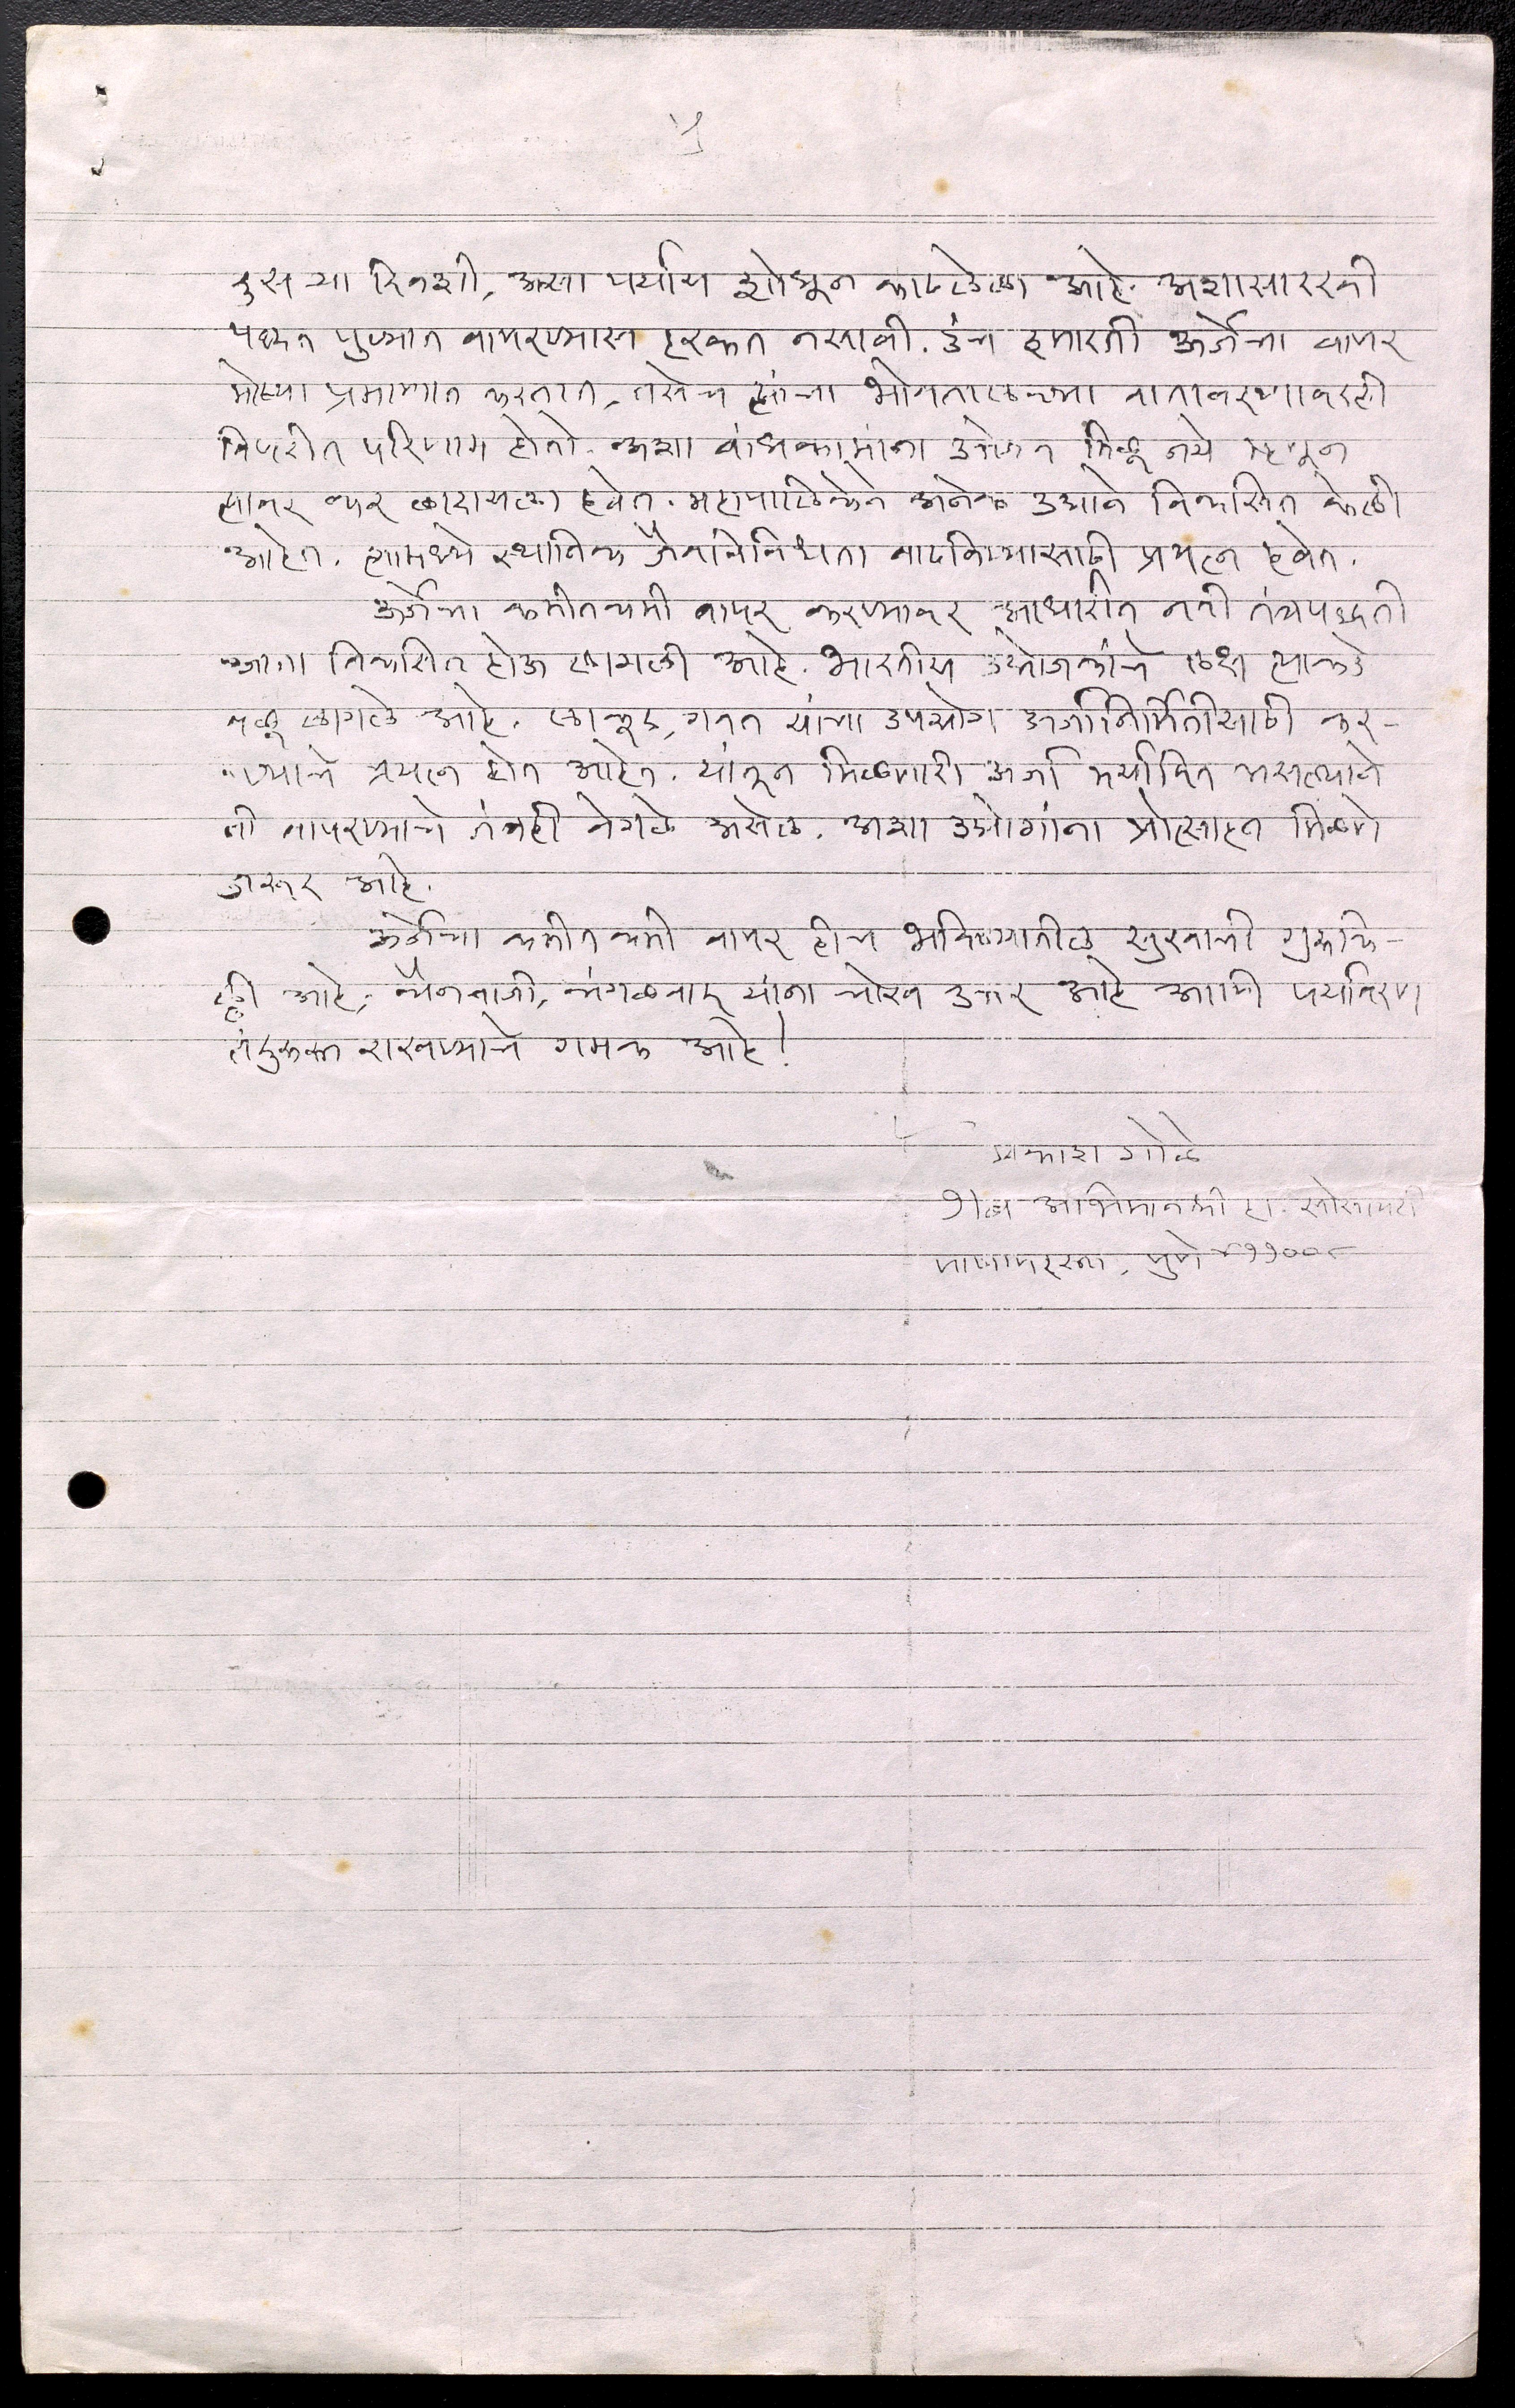 ५
दुसऱ्या दिवशी, असा पर्याय शोधून काढलेला आहे. अशासारखी
पध्दत पुण्यात वापरण्यास हरकत नसावी. उंच इमारती ऊर्जेचा वापर
मोठ्या प्रमाणात करतात, तसेच त्यांचा भोवतालच्या वातावरणावरही
विपरीत परिणाम होतो. अशा बांधकामांना उत्तेजन मिळू नये म्हणून
त्यावर कर लादायला हवेत. महापालिकेने अनेक उद्याने विकसित केली
आहेत. त्यामध्ये स्थानिक जैवविविधता वाढविण्यासाठी प्रयत्न हवेत.
ऊर्जेचा कमीतकमी वापर करण्यावर आधारीत नवी तंत्रपद्धती
आता विकसित होऊ लागली आहे. भारतीय उद्योजकांचे लक्ष त्याकडे
वळू लागले आहे. लाकूड, गवत यांचा उपयोग ऊर्जानिर्मितीसाठी कर-
ण्याचे प्रयत्न होत आहेत. यांतून मिळणारी ऊर्जा मर्यादित असल्याने
ती वापरण्याचे तंत्रही वेगळे असेल. अशा उद्योगांना प्रोत्साहन मिळणे
जरूर आहे.
ऊर्जेचा कमीत कमी वापर हीच भविष्यातील सुखाची गुरूकि-
ल्ली आहे, चैनबाजी, चंगळवाद यांना चोख उत्तर आहे आणि पर्यावरण
तंदुरूस्त राखण्याचे गमक आहे!
प्रकाश गोळे
१/ब अभिमानश्री हा. सोसायटी
पाषाणरस्ता, पुणे ४११००८